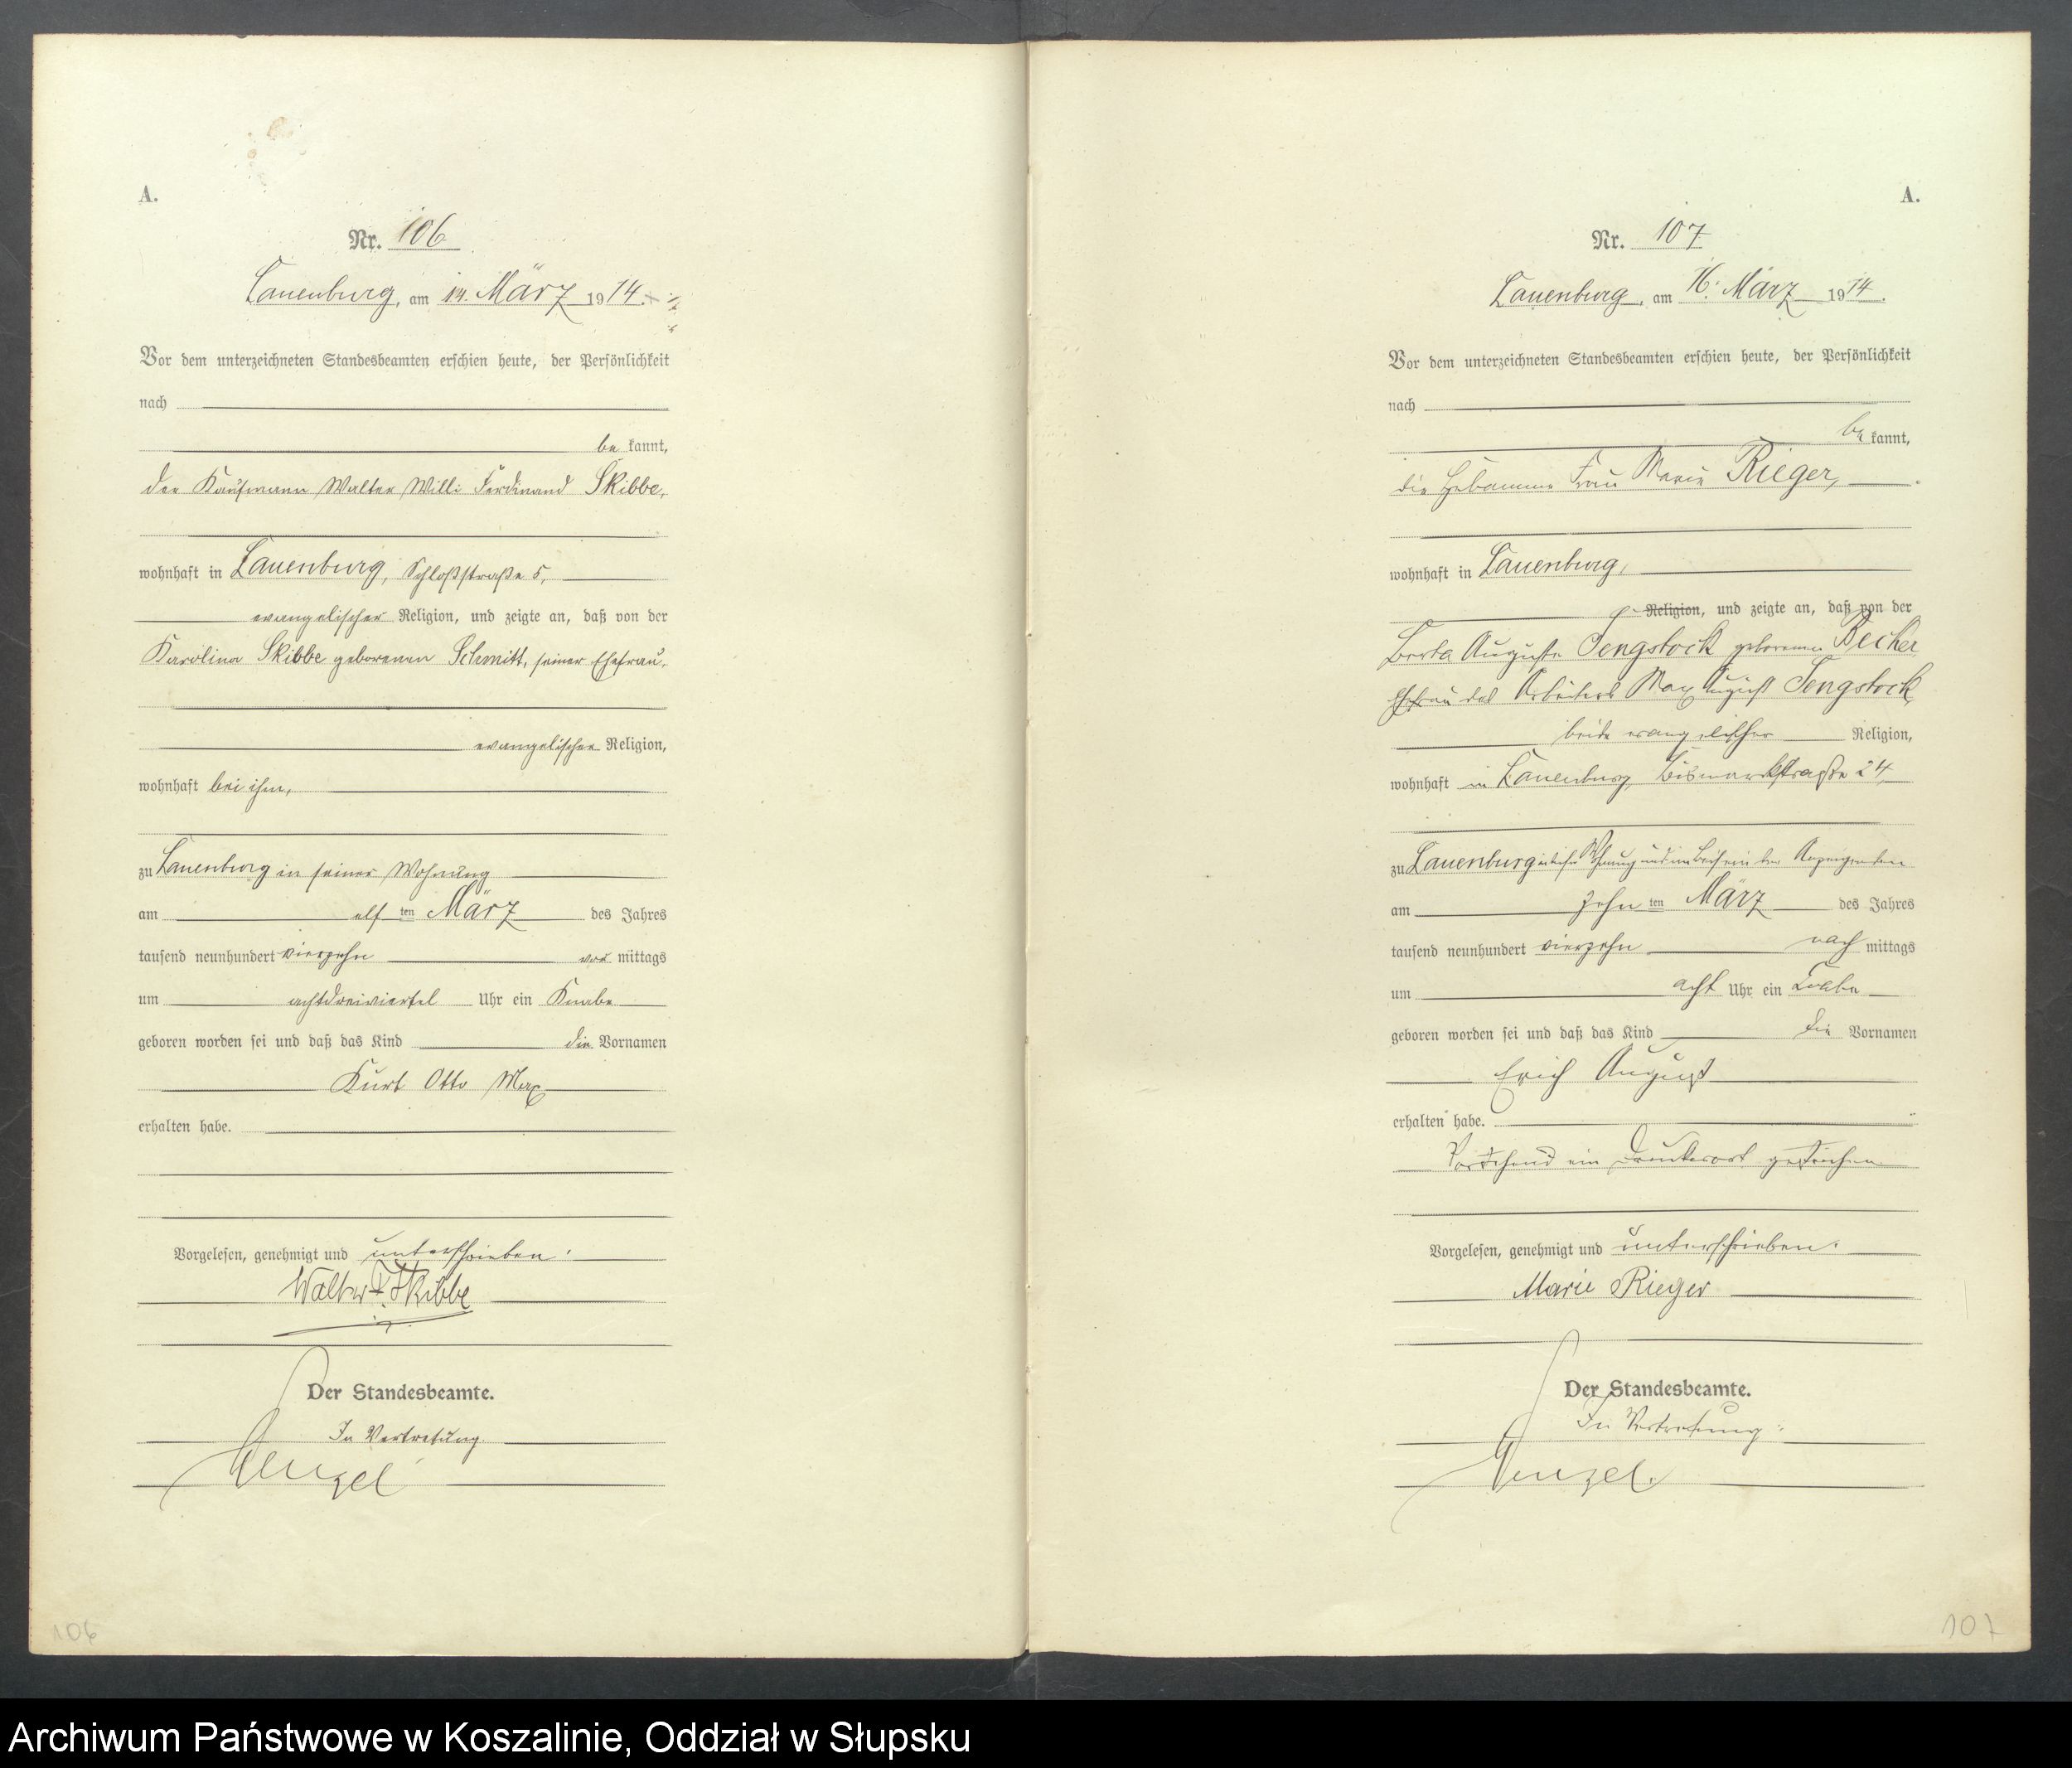 A.
Nr. 106
Lauenburg, am 14. März 1914.
Vor dem unterzeichneten Standesbeamten erschien heute, der Persönlichkeit
nach
be kannt,
der Kaufmann Walter Willi Ferdinand Skibbe,
wohnhaft in Lauenburg, Schloßstraße 5,
evangelischer Religion, und zeigte an, daß von der
Karolina Skibbe geborenen Schmitt, seiner Ehefrau,
evangelischer Religion,
wohnhaft bei ihm,
zu Lauenburg in seiner Wohnung
am elf ten März des Jahres
tausend neunhundert vierzehn vor mittags
um achtdreiviertel Uhr ein Knabe
geboren worden sei und daß das Kind die Vornamen
Kurt Otto Max
erhalten habe.
Vorgelesen, genehmigt und unterschrieben.
Walter F. Skibbe
Der Standesbeamte.
In Vertretung.
Wenzel
106
A.
Nr. 107
Lauenburg, am 16. März 1914.
Vor dem unterzeichneten Standesbeamten erschien heute, der Persönlichkeit
nach
be kannt,
die Hebamme Frau Marie Rieger,
wohnhaft in Lauenburg,
Religion, und zeigte an, daß von der
Berta Auguste Tengstock geborenen Becker
Ehefrau des Arbeiters Max August Tengstock,
beide evangelischer Religion,
wohnhaft in Lauenburg, Bismarckstraße 24,
zu Lauenburg in dieser Wohnung und im Beisein der Anzeigenden
am zehn ten März des Jahres
tausend neunhundert vierzehn nach mittags
um acht Uhr ein Knabe
geboren worden sei und daß das Kind die Vornamen
Erich August
erhalten habe.
Vorstehend ein Druckwort gestrichen
Vorgelesen, genehmigt und unterschrieben.
Marie Rieger
Der Standesbeamte.
In Vertretung:
Wenzel.
107
Archiwum Państwowe w Koszalinie, Oddział w Słupsku